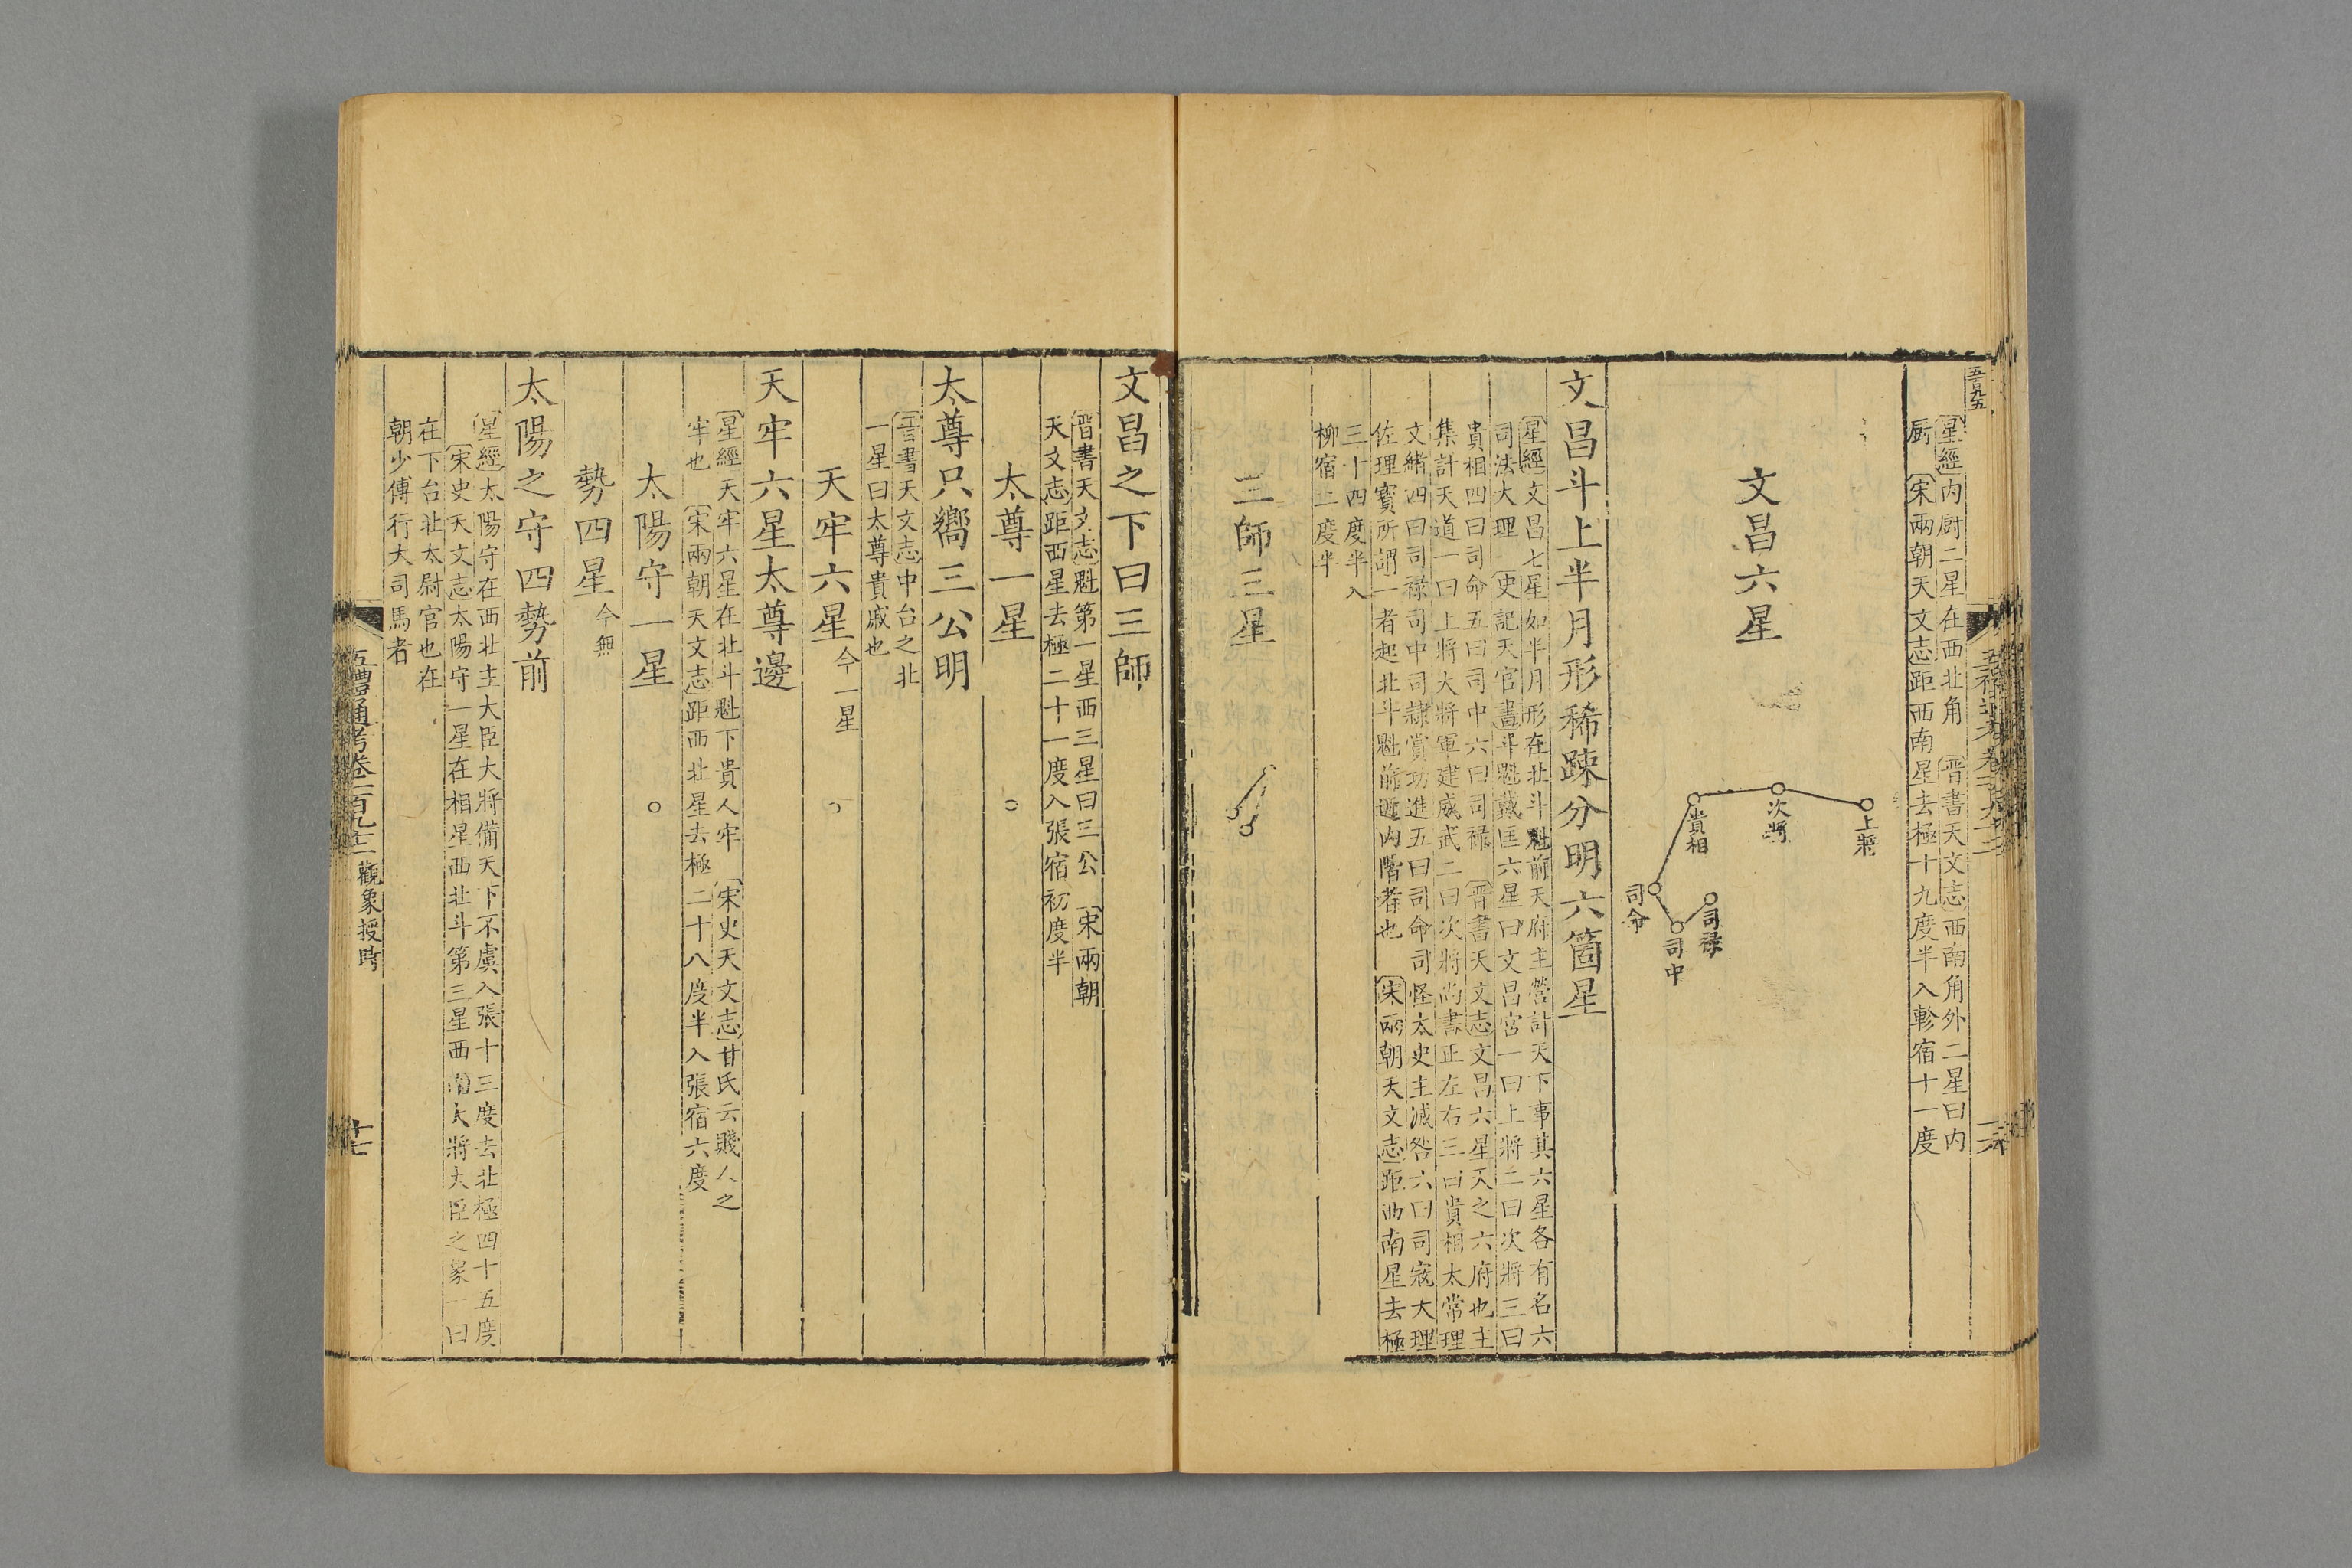 五百九五
星經內厨二星在西北角　晋書天文志西南角外二星曰內
厨　宋兩朝天文志距西南星去極十九度半入軫宿十一度
文昌六星
上將
次將
貴相
司命
司中
司祿
文昌斗上半月形稀踈分明六箇星
星經文昌七星如半月形在北斗魁前天府主營計天下事其六星各有名六
司法大理　史記天官書斗魁戴匡六星曰文昌宮一曰上將二曰次將三曰
貴相四曰司命五曰司中六曰司祿　晋書天文志文昌六星天之六府也主
集計天道一曰上將大將軍建威武二曰次將尚書正左右三曰貴相太常理
文緒四曰司祿司中司隸賞功進五曰司命司怪太史主滅咎六曰司寇大理
佐理寶所謂一者起北斗魁前近內階者也　宋兩朝天文志距西南星去極
三十四度半入
柳宿二度半
三師三星
文昌之下曰三師
晋書天文志魁第一星西三星曰三公　宋兩朝
天文志距西星去極二十一度入張宿初度半
太尊一星
太尊只嚮三公明
晋書天文志中台之北
一星曰太尊貴戚也
天牢六星今一星
天牢六星太尊邊
星經天牢六星在北斗魁下貴人牢　宋史天文志甘氏云賤人之
牢也　宋兩朝天文志距西北星去極二十八度半入張宿六度
太陽守一星
勢四星今無
太陽之守四勢前
星經太陽守在西北主大臣大將備天下不虞入張十三度去北極四十五度
宋史天文志太陽守一星在相星西北斗第三星西南大將大臣之象一曰
在下台北太尉官也在
朝少傅行大司馬者
五禮通考卷一百九十三　觀象授時
十七